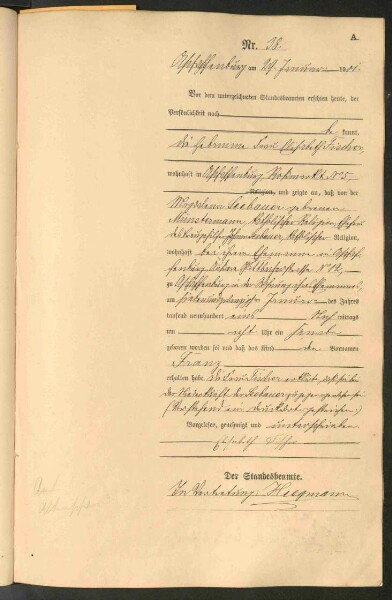 A.
Nr. 38.
Aschaffenburg am 29. Januar 1901.
Vor dem unterzeichneten Standesbeamten erschien heute, der
Persönlichkeit nach
be kannt,
die Hebamme Frau Elisabeth Fischer,
wohnhaft in Aschaffenburg Roßmarkt N 5,
Religion, und zeigte an, daß von der
Magdalena Seebauer geborenen
Münstermann, katholischer Religion, Ehefrau
Seebauer, katholischer Religion,
wohnhaft bei ihrem Ehemanne in Aschaf-
fenburg N 12,
zu Aschaffenburg in der Wohnung ihres Ehemannes,
am siebenundzwanzigsten Januar des Jahres
tausend neunhundert eins Nachmittags
um acht Uhr ein Knabe
geboren worden sei und daß das Kind den Vornamen
Franz
erhalten habe. Die Frau Fischer erklärte, daß sie bei
der Niederkunft der Seebauer zugegen gewesen sei.
(Vorstehend ein Druckwort gestrichen)
Vorgelesen, genehmigt und unterschrieben
Elisabeth Fischer
Der Standesbeamte.
In Vertretung: